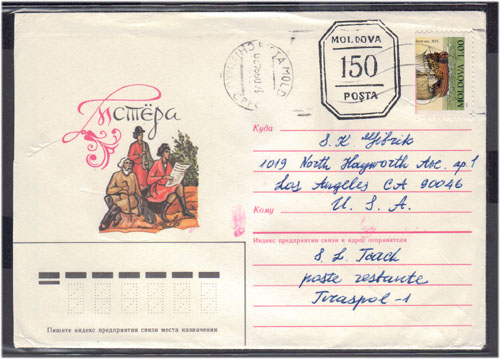 MOLDOVA
150
POȘTA
MOLDOVA 1.00
Мстёра
Куда
S. K.
1019 North Hayworth Ave. ap. 1
Los Angeles CA 90046
Кому
U. S. A.
Индекс предприятия связи и адрес отправителя
S. L. Toach
poste restante
Tiraspol-1
Пишите индекс предприятия связи места назначения